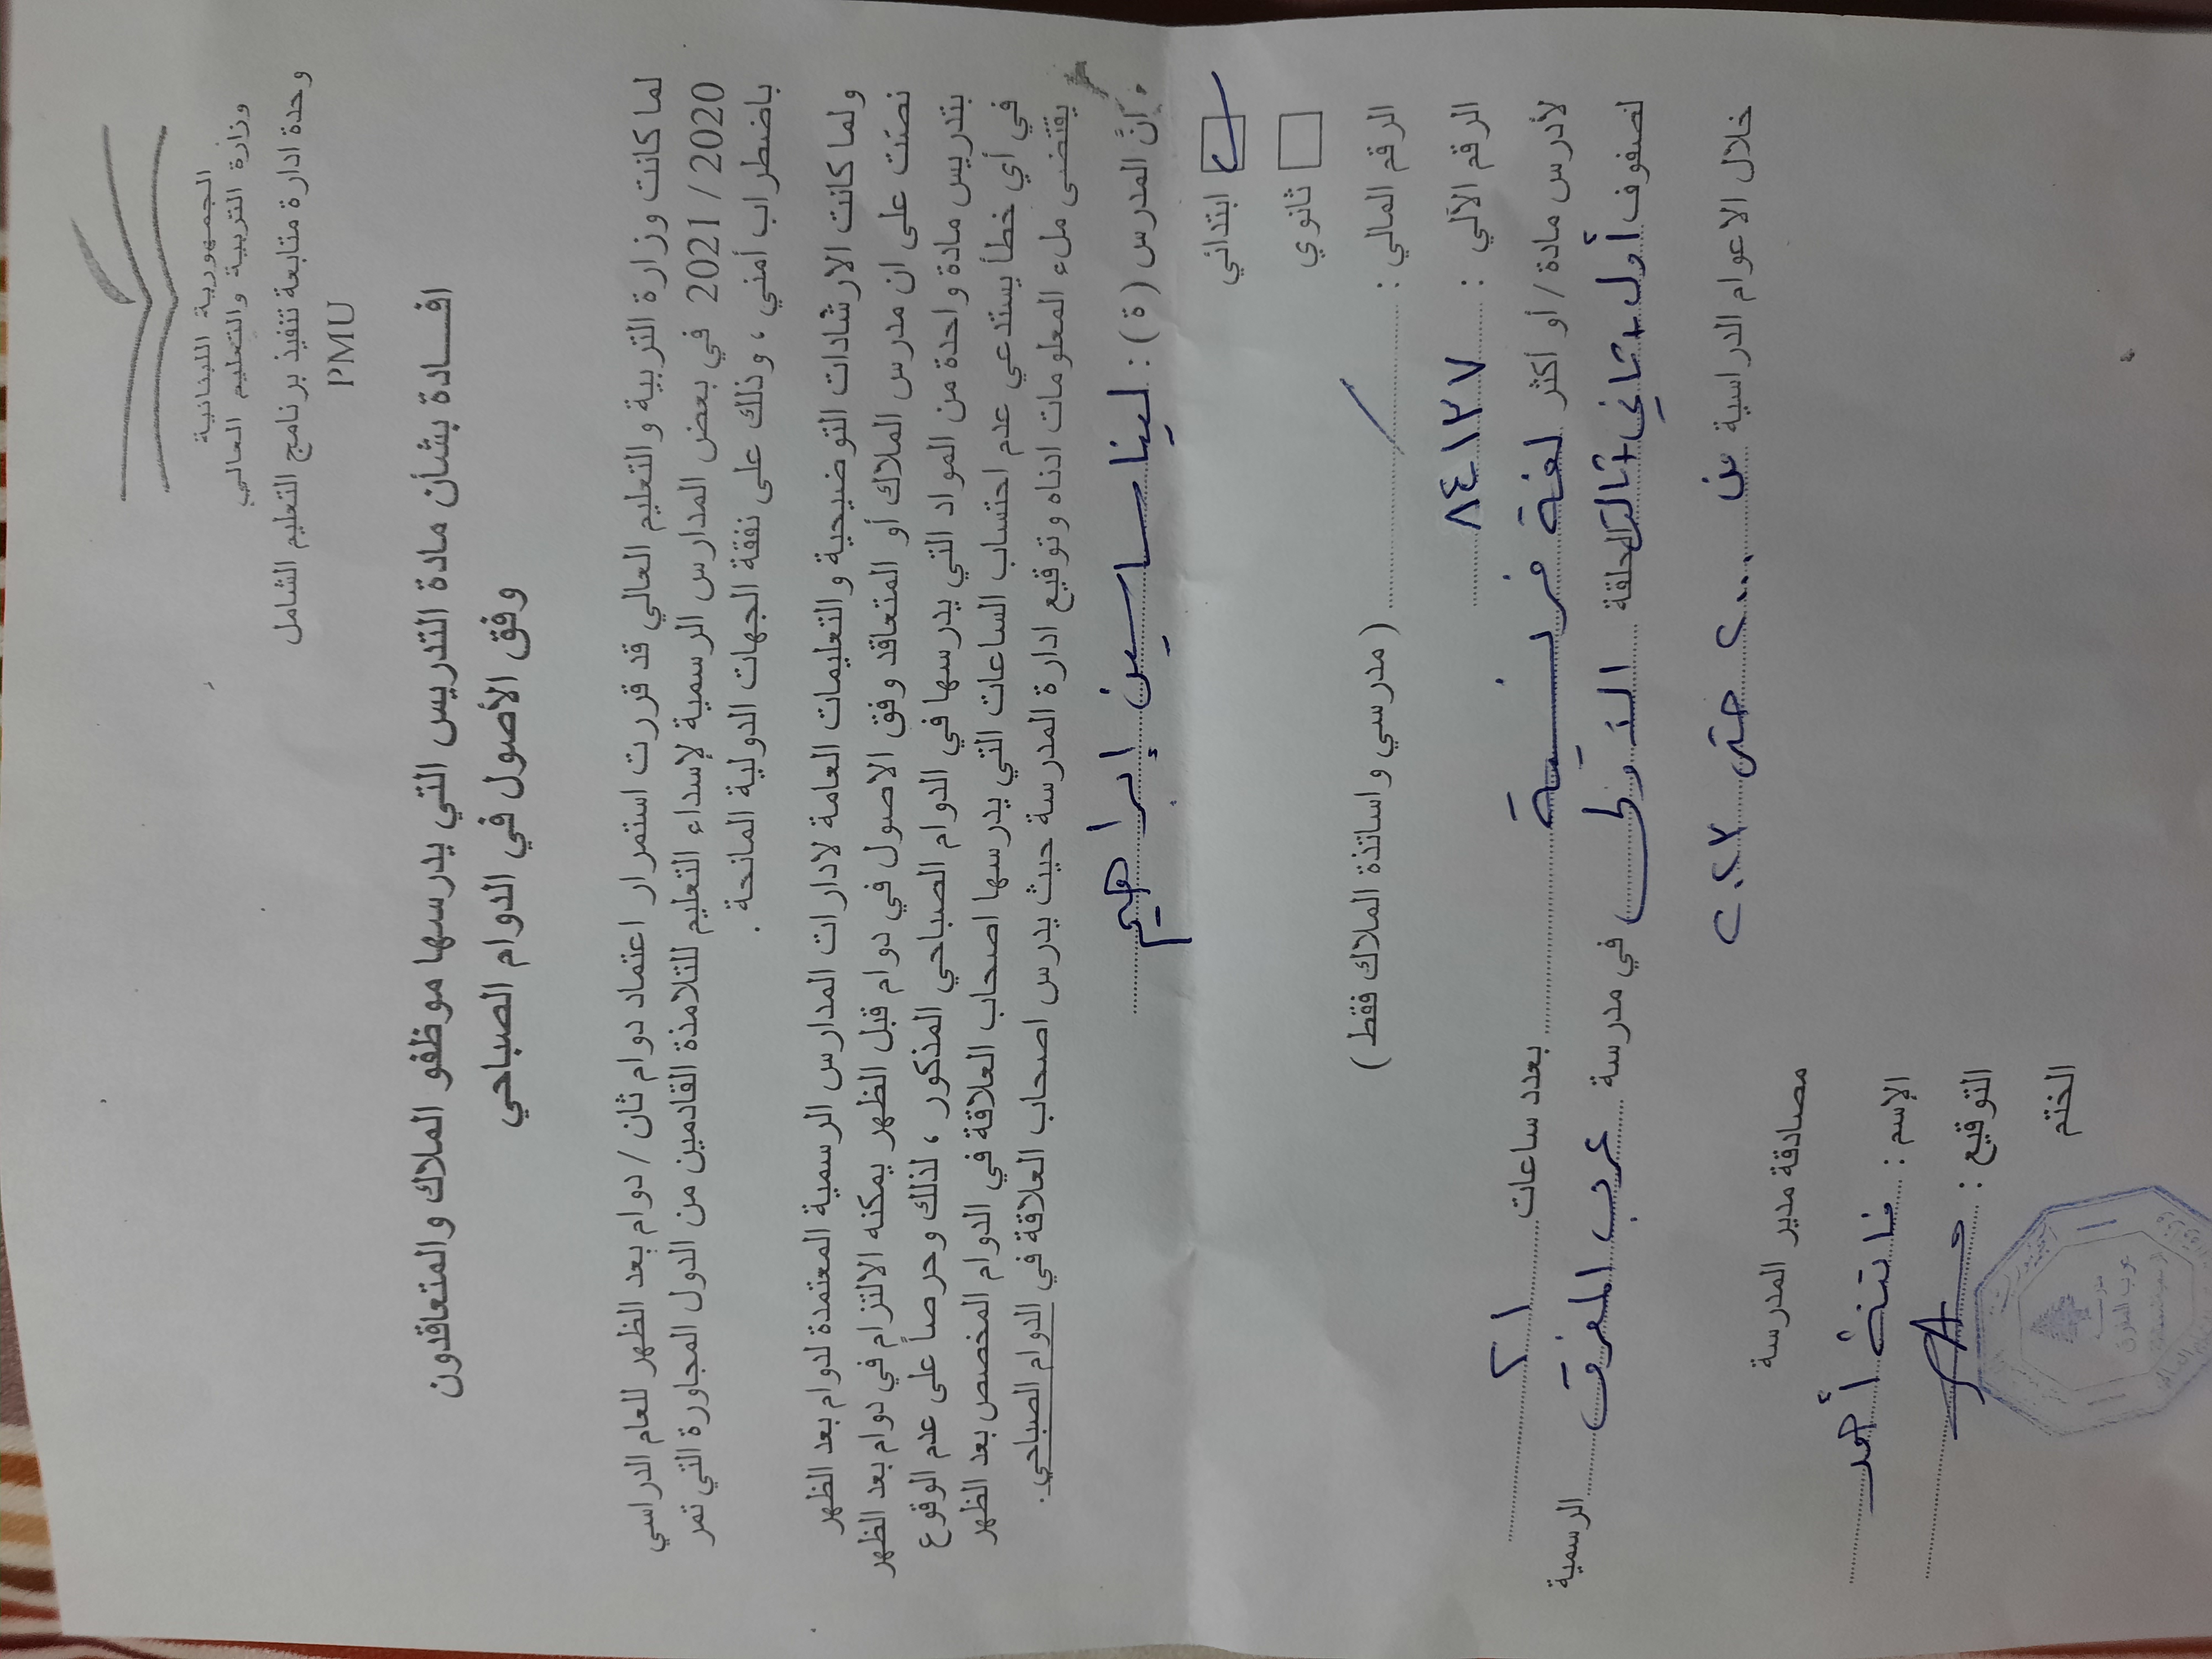 الجمهورية اللبنانية
وزارة التربية والتعليم العالي
وحدة ادارة متابعة تنفيذ برنامج التعليم الشامل
PMU
افـــادة بشأن مادة التدريس التي يدرسها موظفو الملاك والمتعاقدون
وفق الأصول في الدوام الصباحي
لما كانت وزارة التربية والتعليم العالي قد قررت استمرار اعتماد دوام ثان / دوام بعد الظهر للعام الدراسي
2020 / 2021 في بعض المدارس الرسمية لإسداء التعليم للتلامذة القادمين من الدول المجاورة التي تمر
باضطراب أمني ، وذلك على نفقة الجهات الدولية المانحة .
ولما كانت الارشادات التوضيحية والتعليمات العامة لادارات المدارس الرسمية المعتمدة لدوام بعد الظهر
نصت على ان مدرس الملاك أو المتعاقد وفق الاصول في دوام قبل الظهر يمكنه الالتزام في دوام بعد الظهر
بتدريس مادة واحدة من المواد التي يدرسها في الدوام الصباحي المذكور ، لذلك وحرصاً على عدم الوقوع
في أي خطأ يستدعي عدم احتساب الساعات التي يدرسها اصحاب العلاقة في الدوام المخصص بعد الظهر
يقتضى ملء المعلومات ادناه وتوقيع ادارة المدرسة حيث يدرس اصحاب العلاقة في الدوام الصباحي.
إنَّ المدرس ( ة ) : لينا ساسين إبراهيم
ابتدائي
ثانوي
الرقم المالي : ( مدرسي واساتذة الملاك فقط )
الرقم الآلي : ٨٤١٣٧
لأدرس مادة / أو أكثر لغة فرنسية بعدد ساعات ٢١
لصفوف أول + ثاني + ثالث الحلقة الأولى في مدرسة عرب المفرق الرسمية
خلال الاعوام الدراسية من ٢٠٠٠ حتى ٢٠٢٣
مصادقة مدير المدرسة
الإسم : فاتنة أحمد
التوقيع :
الختم